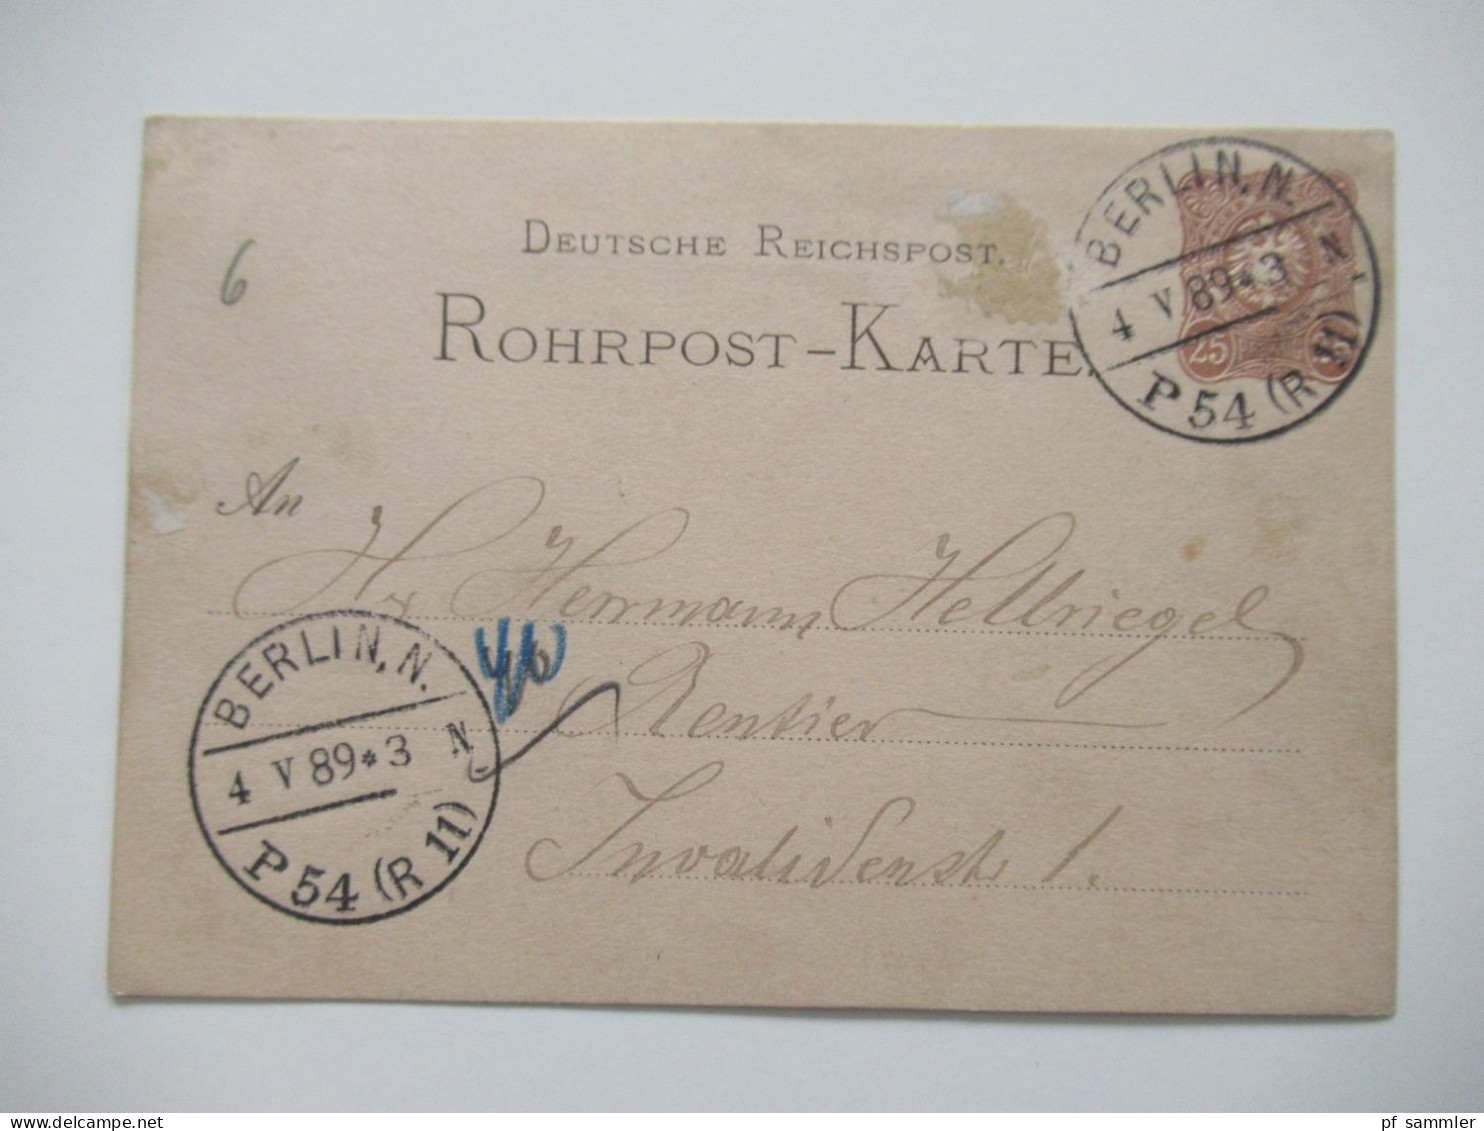 DEUTSCHE REICHSPOST.
ROHRPOST-KARTE.
6
BERLIN, N.
4 V 89*3 N
P 54 (R 11)
25
An
Herrmann Hellriegel
Rentier
Invalidenstr 1.
BERLIN, N.
4 V 89*3 N
P 54 (R 11)
pf sammler